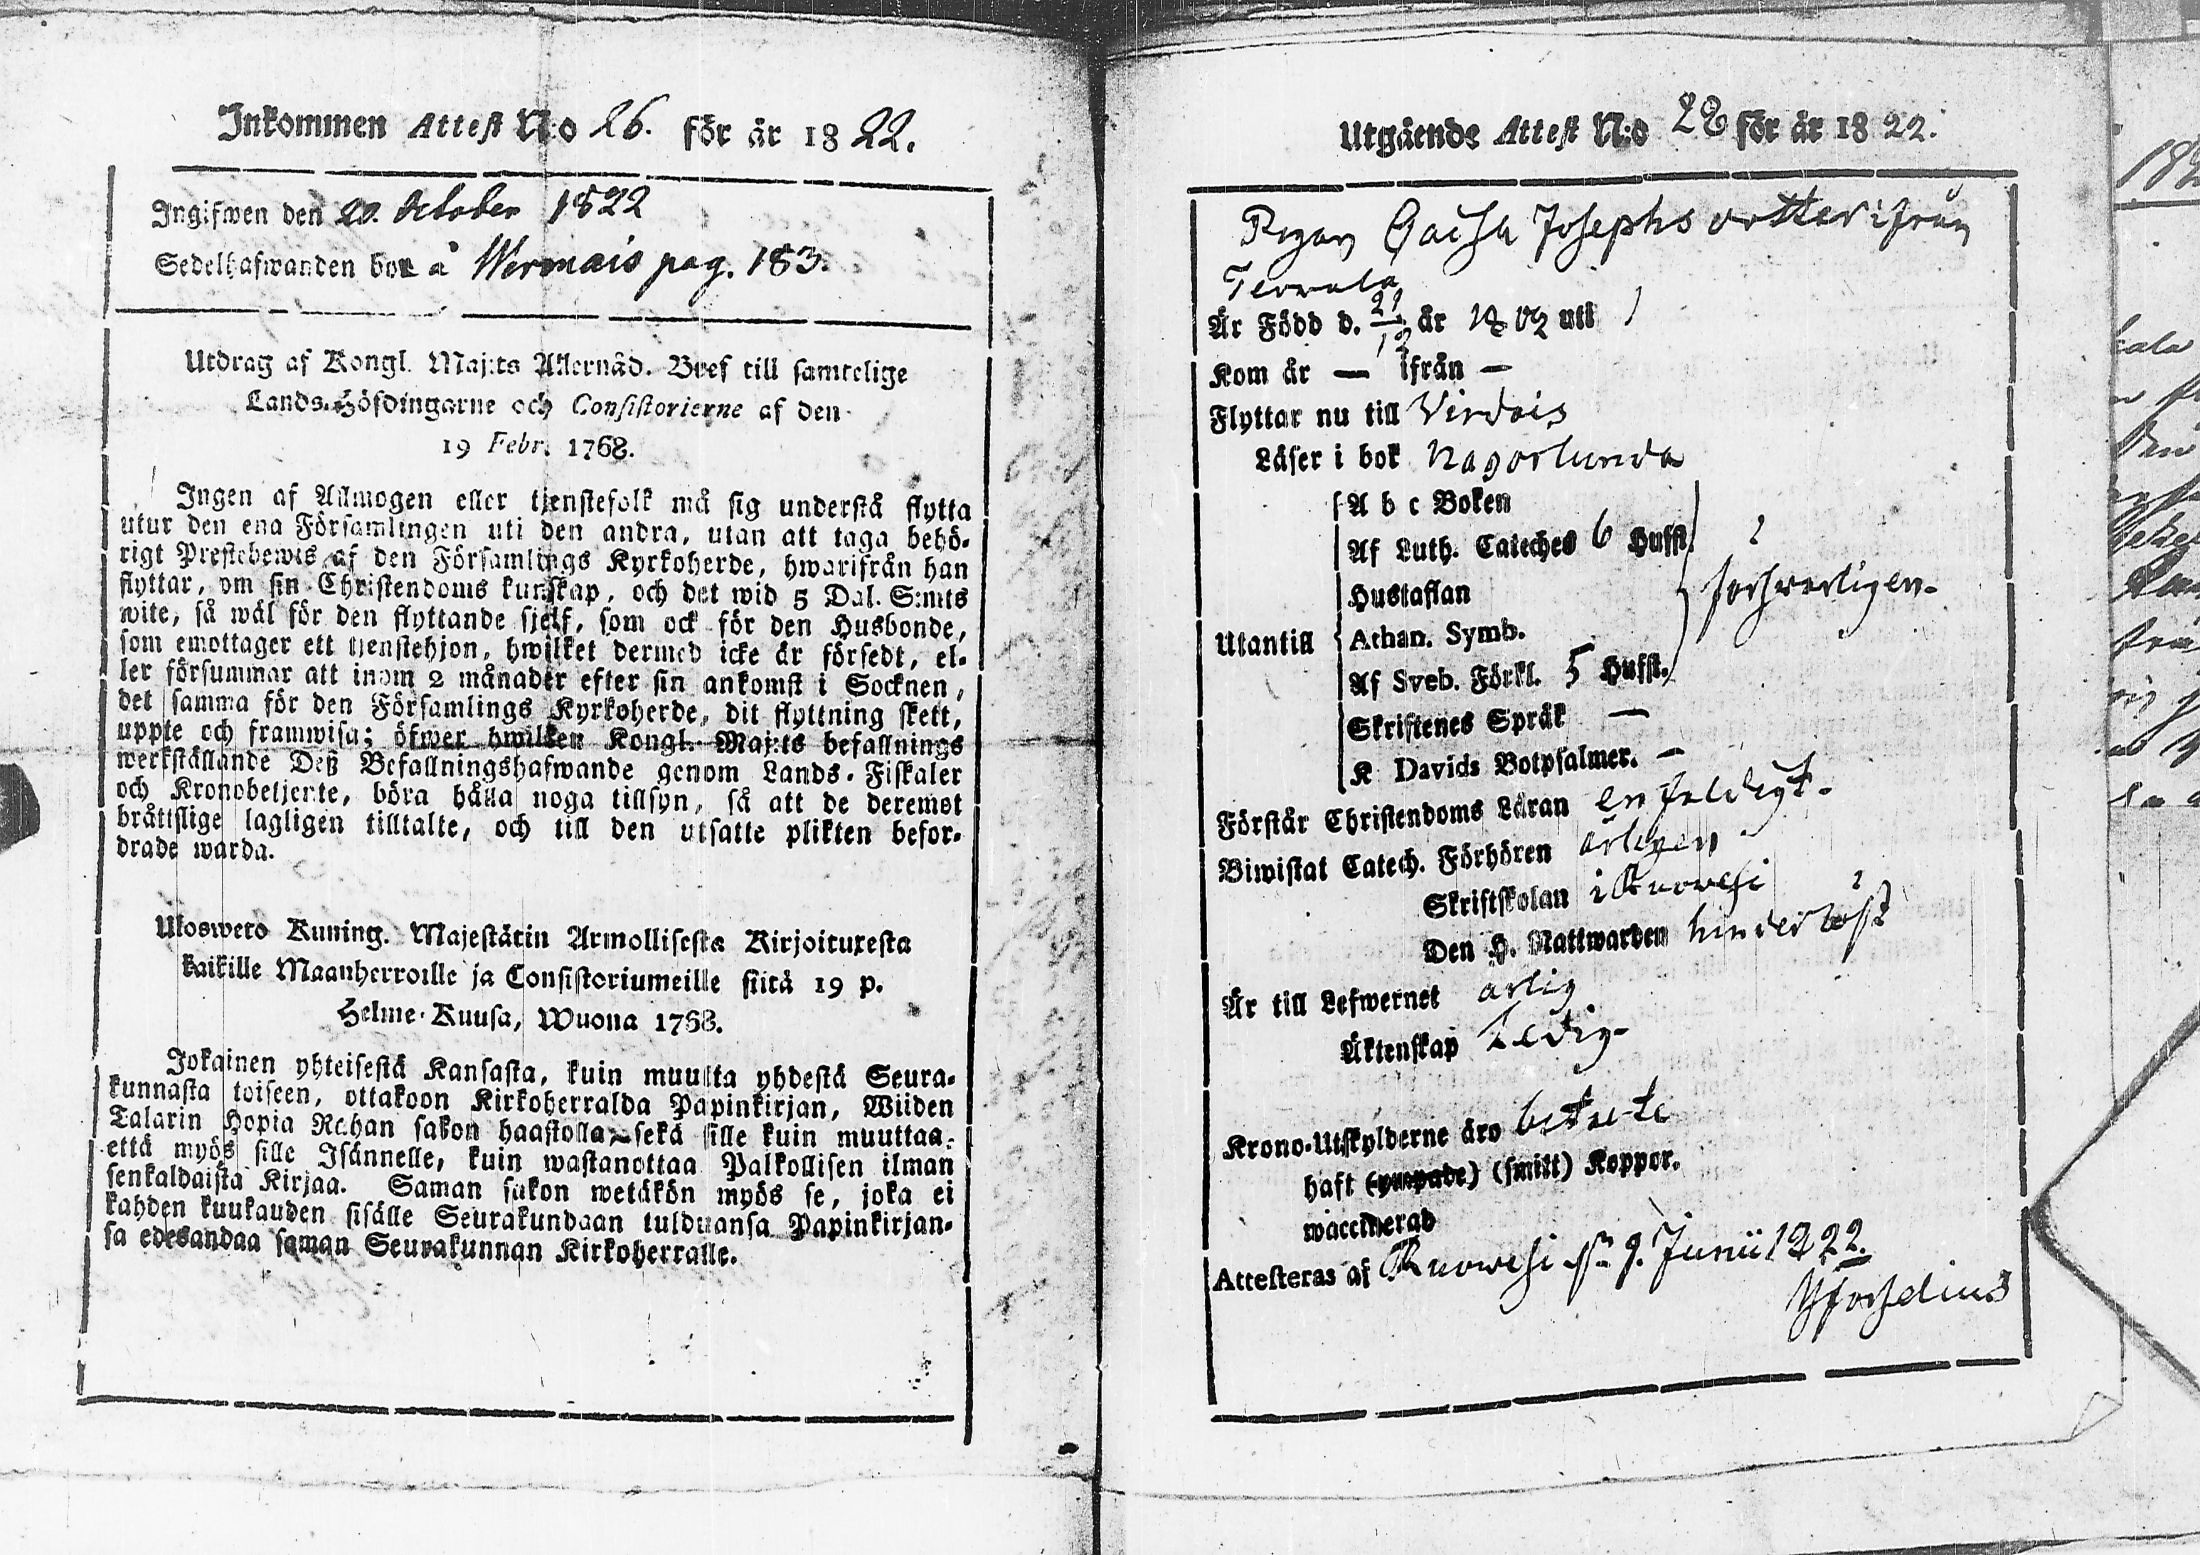 Inkommen Attest N:o 26. för år 1822.
Ingifwen den 20. October 1822
Sedelhafwanden bor å Wermais pag. 183.
Utdrag af Kongl. Maj:ts Allernåd. Bref till samtelige
Lands-Höfdingarne och Consistorierne af den
19 Febr. 1768.
Ingen af Allmogen eller tjenstefolk må sig understå flytta
utur den ena Församlingen uti den andra, utan att taga behö-
rigt Prestebewis af den Församlings Kyrkoherde, hwarifrån han
flyttar, om sin Christendoms kunskap, och det wid 5 Dal. S:mts
wite, så wäl för den flyttande sjelf, som ock för den Husbonde,
som emottager ett tjenstehjon, hwilket dermed icke är försedt, el-
ler försummar att inom 2 månader efter sin ankomst i Socknen,
det samma för den Församlings Kyrkoherde, dit flyttning skett,
uppte och framwisa; öfwer hwilken Kongl. Maj:ts befallnings
werkställande Deß Befallningshafwande genom Lands-Fiskaler
och Kronobetjente, böra hålla noga tillsyn, så att de deremot
bråttslige lagligen tilltalte, och till den utsatte plikten befor-
drade warda.
Ulosweto Kuning. Majestätin Armollisesta Kirjoituxesta
kaikille Maanherroille ja Consistoriumeille siitä 19 p.
Helme-Kuusa, Wuona 1768.
Jokainen yhteisestä Kansasta, kuin muutta yhdestä Seura-
kunnasta toiseen, ottakoon Kirkoherralda Papinkirjan, Wiiden
Talarin Hopia Rahan sakon haastolla, sekä sille kuin muuttaa,
että myös sille Isännelle, kuin wastanottaa Palkollisen ilman
senkaldaista Kirjaa. Saman sakon wetäkön myös se, joka ei
kahden kuukauden sisälle Seurakundaan tulduansa Papinkirjan-
sa edesandaa saman Seurakunnan Kirkoherralle.
Utgående Attest N:o 28 för år 1822.
Pigan Caisa Josephs dotter ifrån
Tervala
Är Född d. 21/12 år 1802 uti
Kom år — ifrån —
Flyttar nu till Virdois
Läser i bok någorlunda
Utantill
A b c Boken
Af Luth. Cateches 6 Hufst.
Hustaflan
försvarligen
Athan. Symb.
Af Sveb. Förkl. 5 Hufst.
Skriftenes Språk —
K Davids Botpsalmer. —
Förstår Christendoms Läran enfeldigt.
Biwistat Catech. Förhören årligen
Skriftskolan i Ruovesi
Den H. Nattwarden hinderlöst
Är till Lefwernet ärlig
Äktenskap Ledig
Krono-Utskylderne äro betalte
haft (ympade) (smitt) Koppor.
waccinerad
Attesteras af Ruovesi 9. Junii 1822.